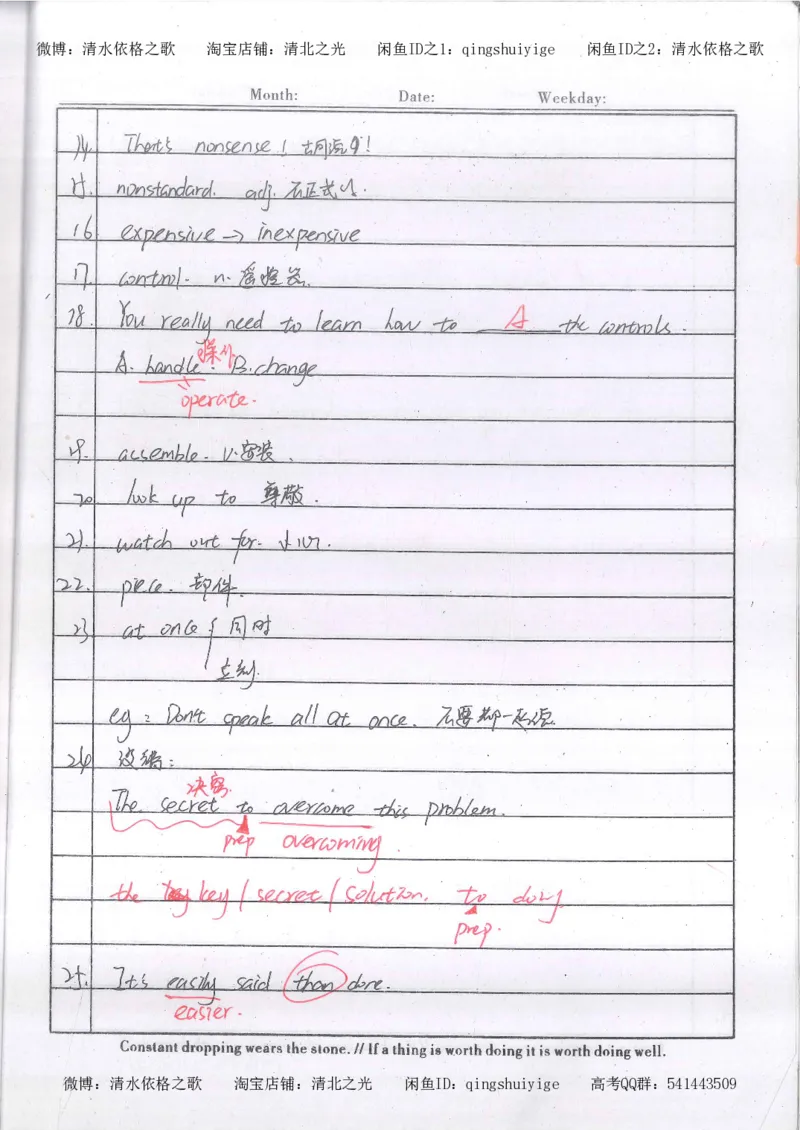 微博：清水依格之歌 淘宝店铺：清北之光 闲鱼ID之1：qingshuiyige 闲鱼ID之2：清水依格之歌
Month: Date: Weekday:
14. That's nonsense! 胡说八!
15. nonstandard. adj. 不正式的.
16 expensive → inexpensive
17. control. n. 遥控器.
18. You really need to learn how to A the controls.
操作
A. handle. B. change
operate.
19. assemble. v. 安装.
20 look up to 尊敬.
21. watch out for. 小心.
22. piece. 部件.
23 at once { 同时
立刻.
eg: Don't speak all at once. 不要都一起说.
24 改编:
决窍.
The secret to overcome this problem.
prep overcoming
the key/secret/solution. to doing
prep.
25. It's easily said than done.
easier.
Constant dropping wears the stone. // If a thing is worth doing it is worth doing well.
微博：清水依格之歌 淘宝店铺：清北之光 闲鱼ID：qingshuiyige 高考QQ群：541443509